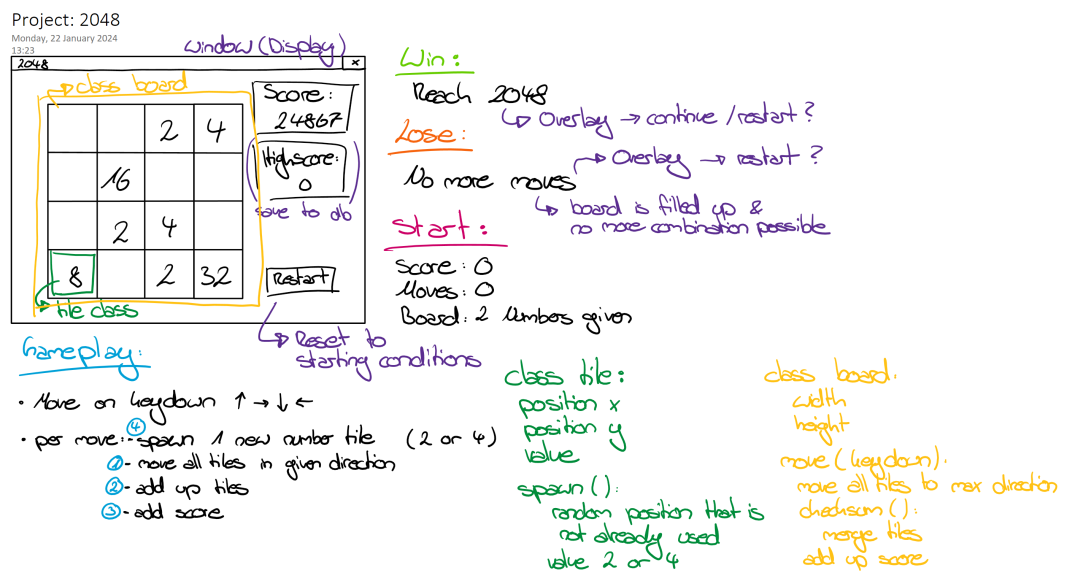 Project: 2048
Monday, 22 January 2024
13:23
window (Display)
2048
x
class board
2 4
16
2 4
8 2 32
tile class
Score:
24867
Highscore:
0
save to db
Restart
Reset to
starting conditions
Win:
Reach 2048
Overlay → continue / restart?
Lose:
Overlay → restart?
No more moves
board is filled up &
no more combination possible
Start:
Score: 0
Moves: 0
Board: 2 Numbers given
Gameplay:
• Move on keydown ↑ → ↓ ←
• per move: ④ - spawn 1 new number tile (2 or 4)
① - move all tiles in given direction
② - add up tiles
③ - add score
class tile:
position x
position y
value
spawn():
random position that is
not already used
value 2 or 4
class board:
width
height
move(keydown):
move all tiles to max direction
checksum():
merge tiles
add up score